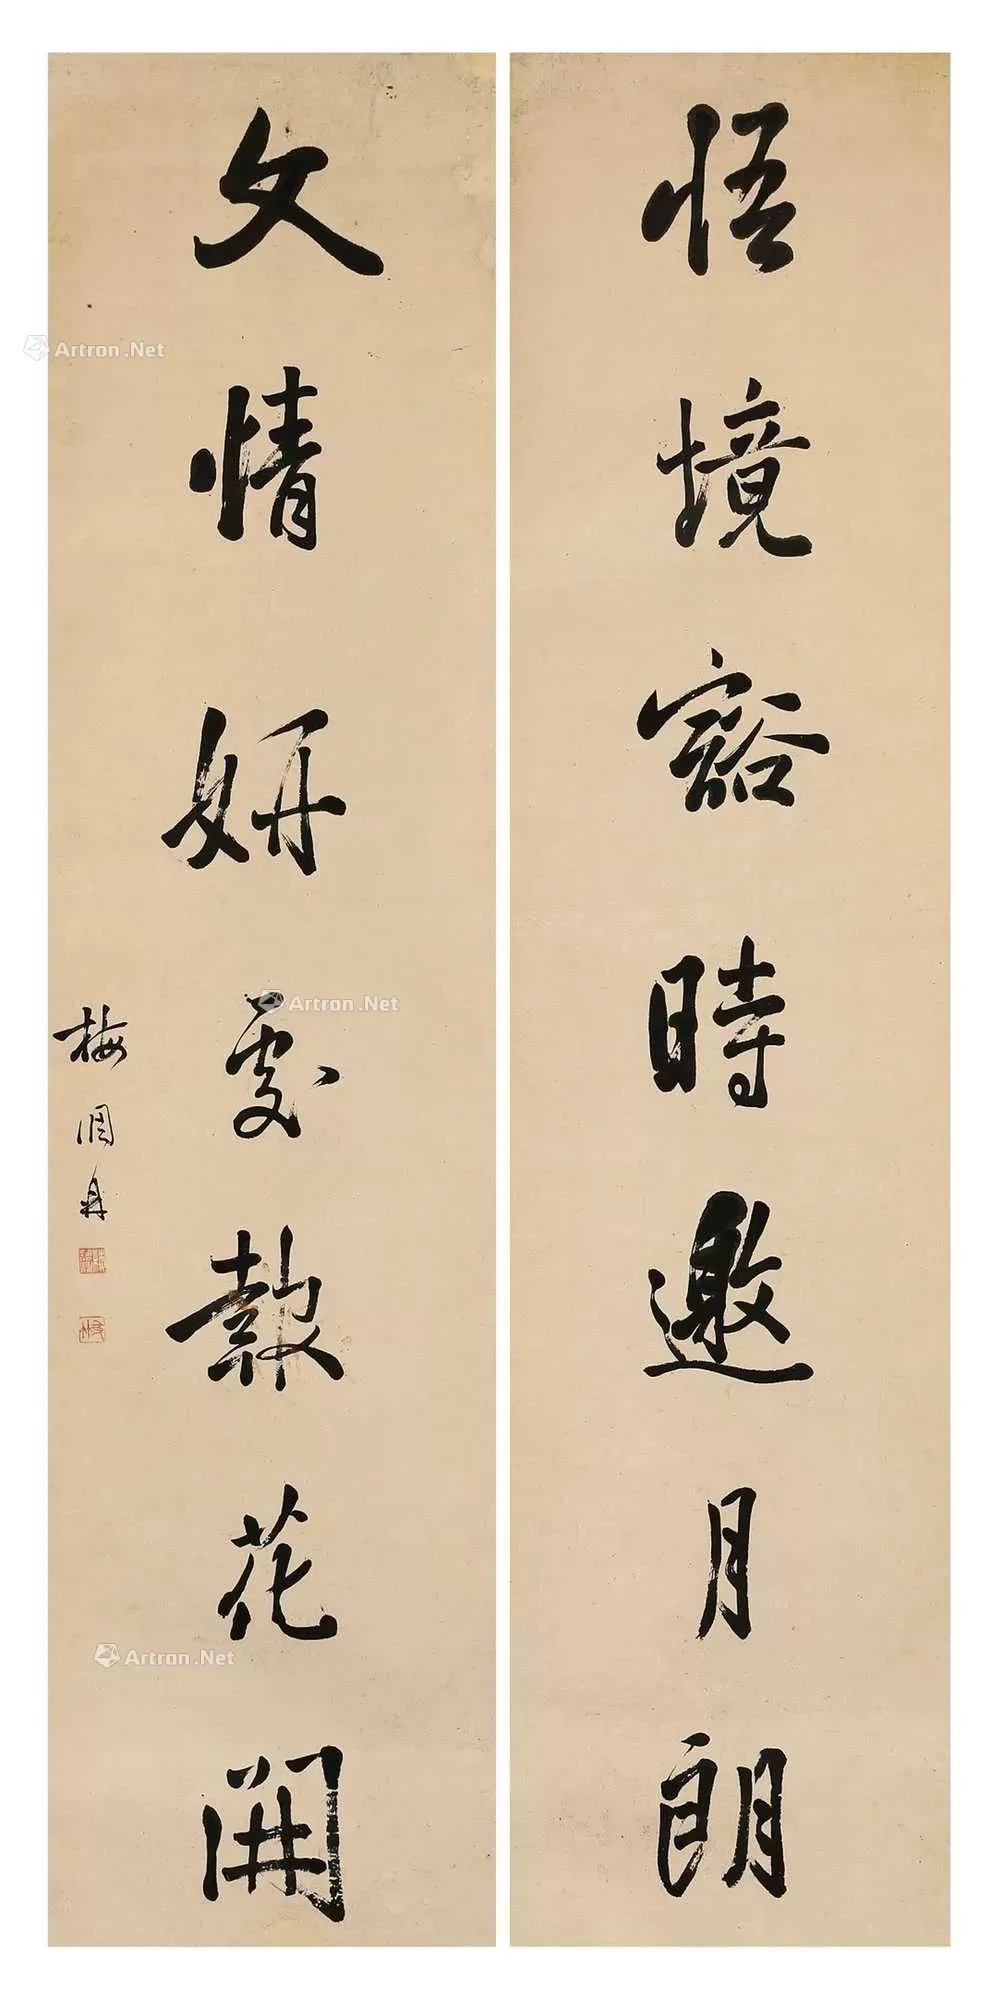 悟境豁時邀月朗
文情妍處報花開
梅調鼎
Artron.Net
Artron.Net
Artron.Net